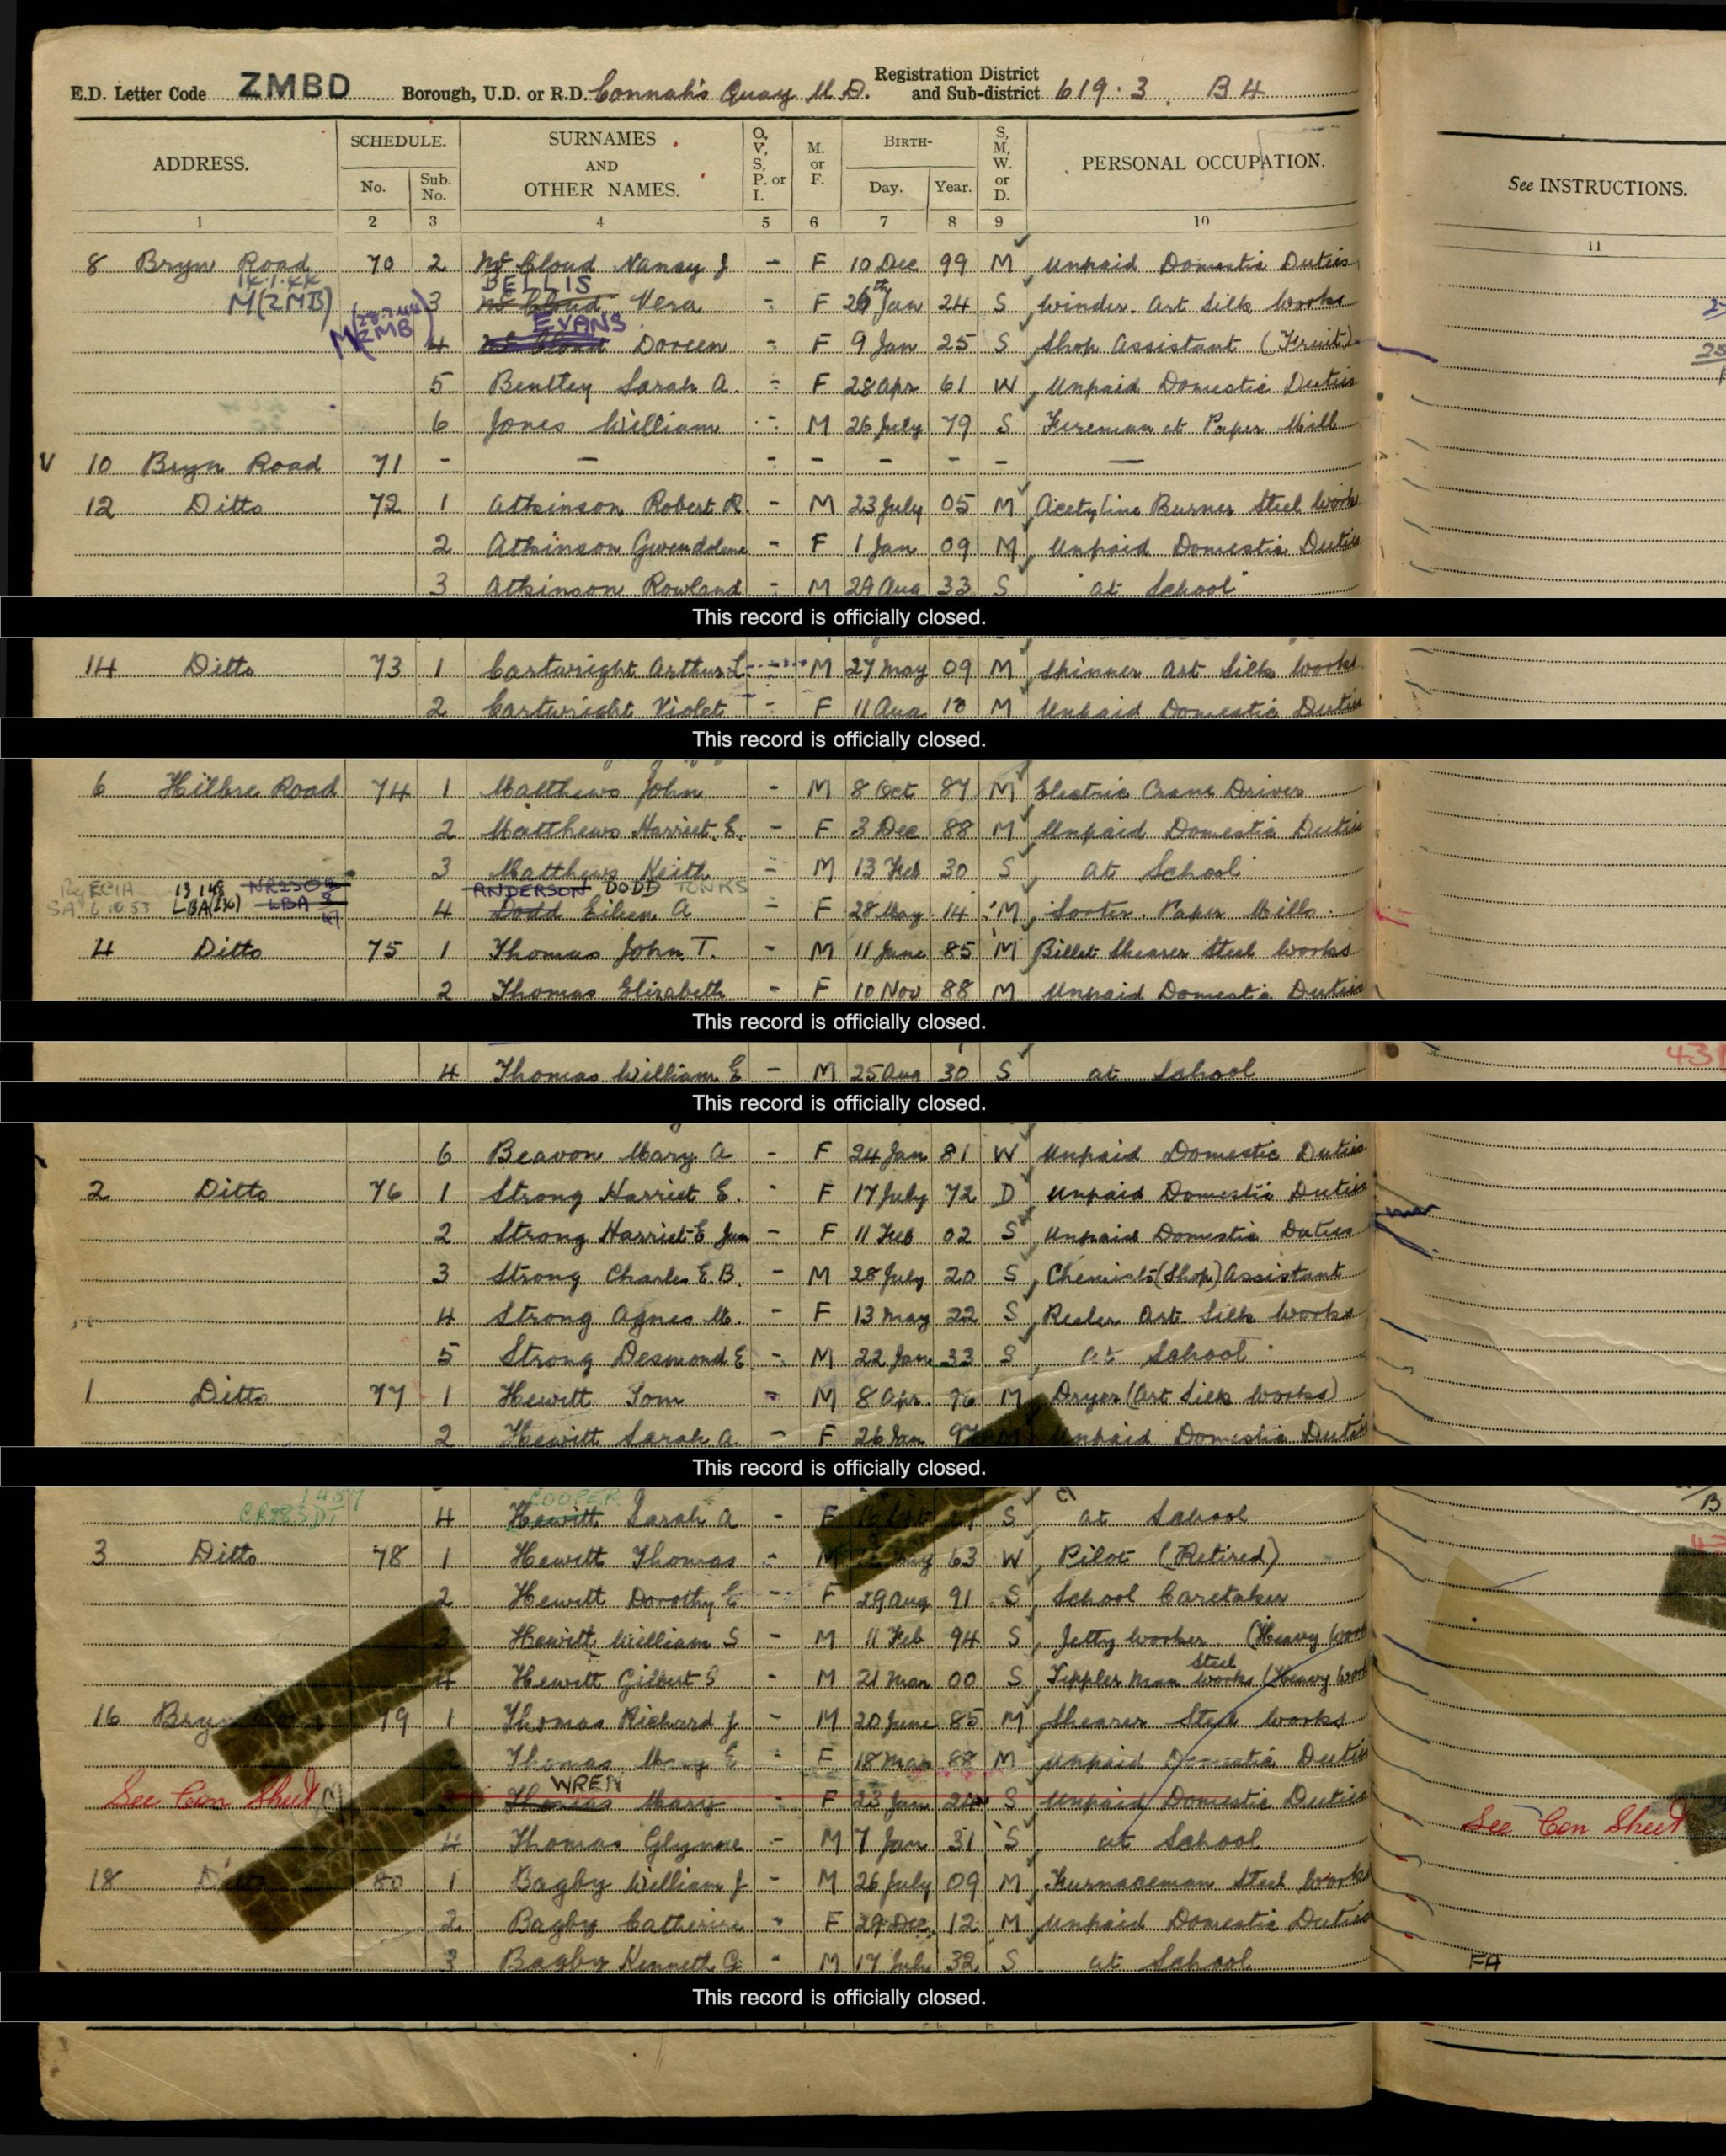 E.D. Letter Code ZMBD Borough, U.D. or R.D. Connah's Quay U.D. Registration District and Sub-district 619.3. B4
ADDRESS. SCHEDULE. No. Sub. No. SURNAMES AND OTHER NAMES. O, V, S, P. or I. M. or F. BIRTH- Day. Year. S, M, W. or D. PERSONAL OCCUPATION. See INSTRUCTIONS.
1 2 3 4 5 6 7 8 9 10 11
8 Bryn Road 70 2 Mc Cloud Nancy J - F 10 Dec 99 M Unpaid Domestic Duties
14.1.44 BELLIS
M(ZMB) 3 Mc Cloud Vera - F 26th Jan 24 S Winder. Art Silk Works
M(ZMB) EVANS
4 Mc Cloud Doreen - F 9 Jan 25 S Shop Assistant (Fruit)
5 Bentley Sarah A. - F 28 Apr 61 W Unpaid Domestic Duties
6 Jones William - M 26 July 79 S Fireman at Paper Mill
V 10 Bryn Road 71 - - - - - - - -
12 Ditto 72 1 Atkinson Robert R. - M 23 July 05 M Acetyline Burner Steel Work
2 Atkinson Gwendolene - F 1 Jan 09 M Unpaid Domestic Duties
3 Atkinson Rowland - M 29 Aug 33 S at School
This record is officially closed.
14 Ditto 73 1 Cartwright Arthur L - M 27 May 09 M Spinner Art Silk Works
2 Cartwright Violet - F 11 Aug 10 M Unpaid Domestic Duties
This record is officially closed.
6 Hilbre Road 74 1 Matthews John - M 8 Oct 87 M Electric Crane Driver
2 Matthews Harriet. E. - F 3 Dec 88 M Unpaid Domestic Duties
3 Matthews Keith - M 13 Feb 30 S at School
ANDERSON DODD TONKS
4 Dodd Eileen A - F 28 May 14 M Sorter. Paper Mills.
4 Ditto 75 1 Thomas John T. - M 11 June 85 M Billet Shearer Steel Works
2 Thomas Elizabeth - F 10 Nov 88 M Unpaid Domestic Duties
This record is officially closed.
4 Thomas William E - M 25 Aug 30 S at School 431
This record is officially closed.
6 Beavon Mary A - F 24 Jan 81 W Unpaid Domestic Duties
2 Ditto 76 1 Strong Harriet E. - F 17 July 72 D Unpaid Domestic Duties
2 Strong Harriet E Jun - F 11 Feb 02 S Unpaid Domestic Duties
3 Strong Charles E.B. - M 28 July 20 S Chemists (Shop) Assistant
4 Strong Agnes M. - F 13 May 22 S Reeler Art. Silk Works
5 Strong Desmond E - M 22 Jan 33 S at School
1 Ditto 77 1 Hewitt Tom - M 8 Apr. 96 M Dryer (Art Silk Works)
2 Hewitt Sarah A - F 26 Jan M Unpaid Domestic Duties
This record is officially closed.
COOPER
4 Hewitt Sarah A - F S at School
3 Ditto 78 1 Hewitt Thomas - M 63 W Pilot (Retired)
2 Hewitt Dorothy E - F 29 Aug 91 S School Caretaker
3 Hewitt William S - M 11 Feb 94 S Jetty Worker (Heavy Work
4 Hewitt Gilbert S - M 21 Mar 00 S Tippler Man Steel Works (Heavy Work
16 Bryn 79 1 Thomas Richard J - M 20 June 85 M Shearer Steel Works
Thomas Mary E - F 18 Mar 88 M Unpaid Domestic Duties
WREN
See Con Sheet Thomas Mary - F 23 Jan 24 S Unpaid Domestic Duties See Con Sheet
4 Thomas Glynne - M 7 Jan 31 S at School
18 80 1 Bagby William J - M 26 July 09 M Furnaceman Steel Works
2 Bagby Catherine - F 29 Dec. 12 M Unpaid Domestic Duties
3 Bagby Kenneth G - M 17 July 32 S at School FA
This record is officially closed.